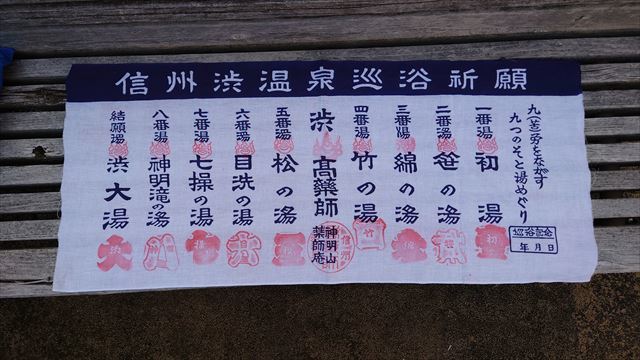 信州渋温泉巡浴祈願
九(苦)労をながす
九つのそと湯めぐり
巡浴記念
年月日
一番湯 初湯
二番湯 笹の湯
三番湯 綿の湯
四番湯 竹の湯
渋 高薬師
神明山
薬師庵
五番湯 松の湯
六番湯 目洗の湯
七番湯 七操の湯
八番湯 神明滝の湯
結願湯 渋大湯